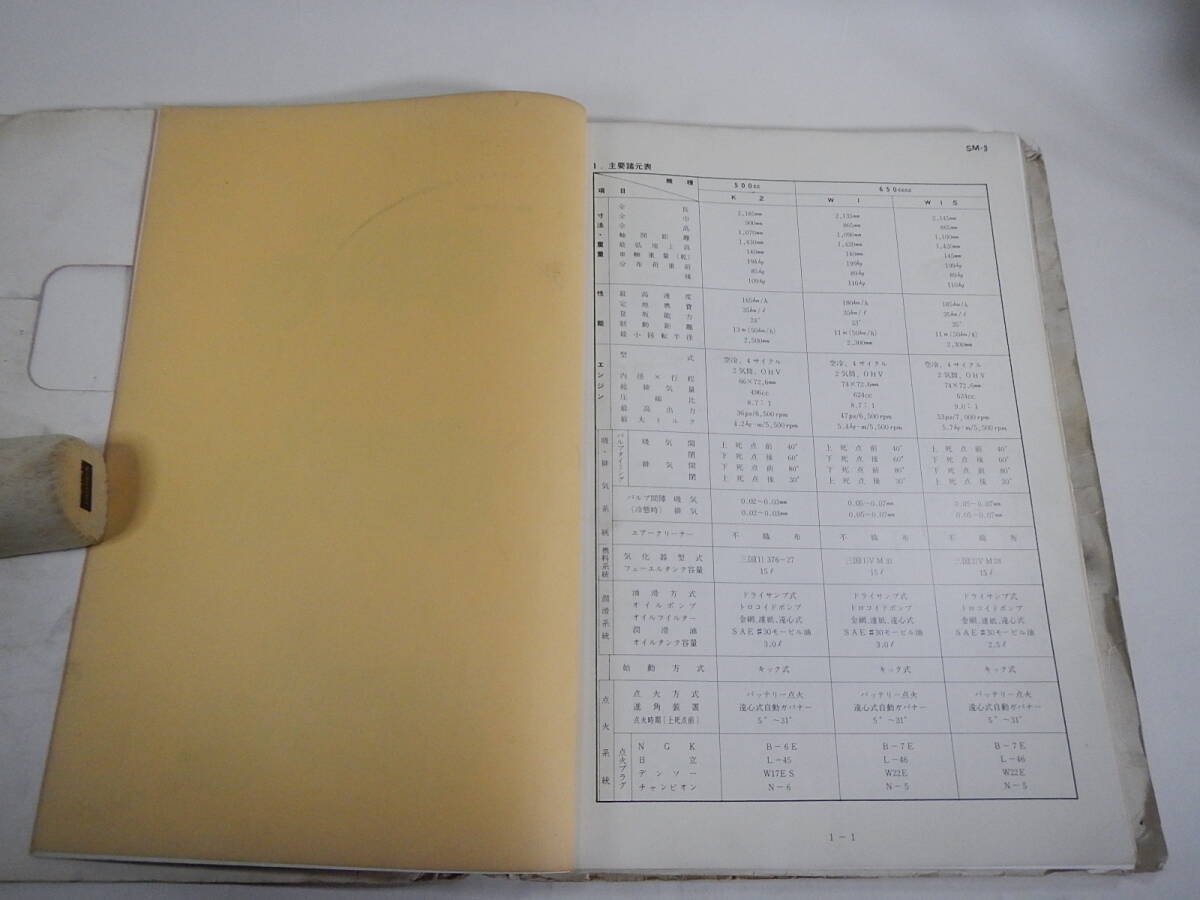 SM-3
1. 主要諸元表
機種 500cc 650cc
項目 K2 W1 W1S
寸法・重量
全長 2,135mm
全巾 865mm 865mm
全高 1,070mm 1,090mm 1,100mm
軸間距離 1,430mm 1,430mm 1,430mm
最低地上高 140mm 140mm 145mm
車輌重量(乾) 199kg 199kg
分布荷重前 89kg 89kg
後 109kg 110kg 110kg
性能
最高速度 165km/h 180km/h 185km/h
定地燃費 35km/ℓ 35km/ℓ 35km/ℓ
登坂能力
制動距離 13m(50km/h) 11m(50km/h) 11m(50km/h)
最小回転半径 2,500mm 2,300mm 2,300mm
エンジン
型式 空冷、4サイクル 空冷、4サイクル 空冷、4サイクル
2気筒、OHV 2気筒、OHV 2気筒、OHV
内径×行程 66×72.6mm 74×72.6mm 74×72.6mm
総排気量 496cc 624cc 624cc
圧縮比 8.7:1 8.7:1 9.0:1
最高出力 36ps/6,500rpm 47ps/6,500rpm 53ps/7,000rpm
最大トルク 4.2kg-m/5,500rpm 5.4kg-m/5,500rpm 5.7kg-m/5,500rpm
吸・排気系統
バルブタイミング
吸気開 上死点前40° 上死点前40° 上死点前40°
閉 下死点後60° 下死点後60° 下死点後60°
排気開 下死点前80° 下死点前80° 下死点前80°
閉 上死点後30° 上死点後30° 上死点後30°
バルブ間隙吸気 0.02~0.03mm 0.05~0.07mm 0.05~0.07mm
(冷態時)排気 0.02~0.03mm 0.05~0.07mm 0.05~0.07mm
エアークリーナー 不織布 不織布 不織布
燃料系統
気化器型式 三国 376-27 三国 VM31 三国 VM28
フューエルタンク容量 15ℓ 15ℓ 15ℓ
潤滑系統
潤滑方式 ドライサンプ式 ドライサンプ式 ドライサンプ式
オイルポンプ トロコイドポンプ トロコイドポンプ トロコイドポンプ
オイルフイルター 金網、濾紙、遠心式 金網、濾紙、遠心式 金網、濾紙、遠心式
潤滑油 SAE#30モービル油 SAE#30モービル油 SAE#30モービル油
オイルタンク容量 3.0ℓ 3.0ℓ 2.5ℓ
始動方式 キック式 キック式 キック式
点火系統
点火方式 バッテリー点火 バッテリー点火 バッテリー点火
進角装置 遠心式自動ガバナー 遠心式自動ガバナー 遠心式自動ガバナー
点火時期[上死点前] 5°~31° 5°~31° 5°~31°
点火プラグ
NGK B-6E B-7E B-7E
日立 L-45 L-46 L-46
デンソー W17ES W22E W22E
チャンピオン N-6 N-5 N-5
1-1